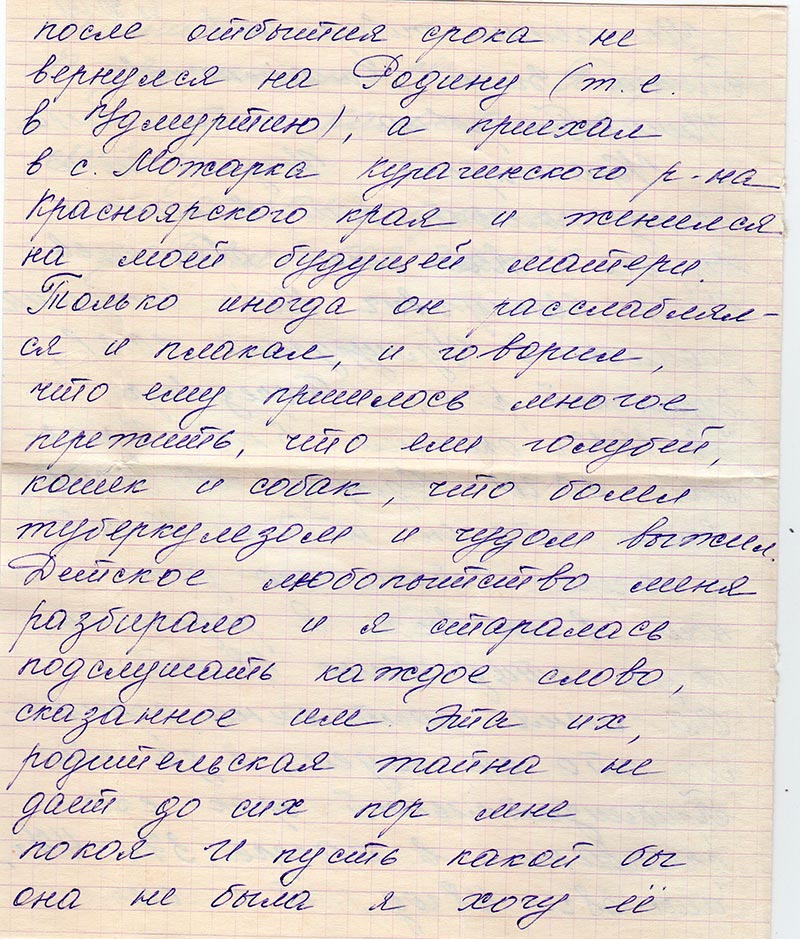 после отбытия срока не
вернулся на Родину (т.е.
в Удмуртию), а приехал
в с. Можарка Курагинского р-на
Красноярского края и женился
на моей будущей матери.
Только иногда он расслаблял-
ся и плакал, и говорил,
что ему пришлось многое
пережить, что ели голубей,
кошек и собак, что болел
туберкулезом и чудом выжил.
Детское любопытство меня
разбирало и я старалась
подслушать каждое слово,
сказанное им. Эта их,
родительская тайна не
дает до сих пор мне
покоя И пусть какой бы
она не была я хочу её